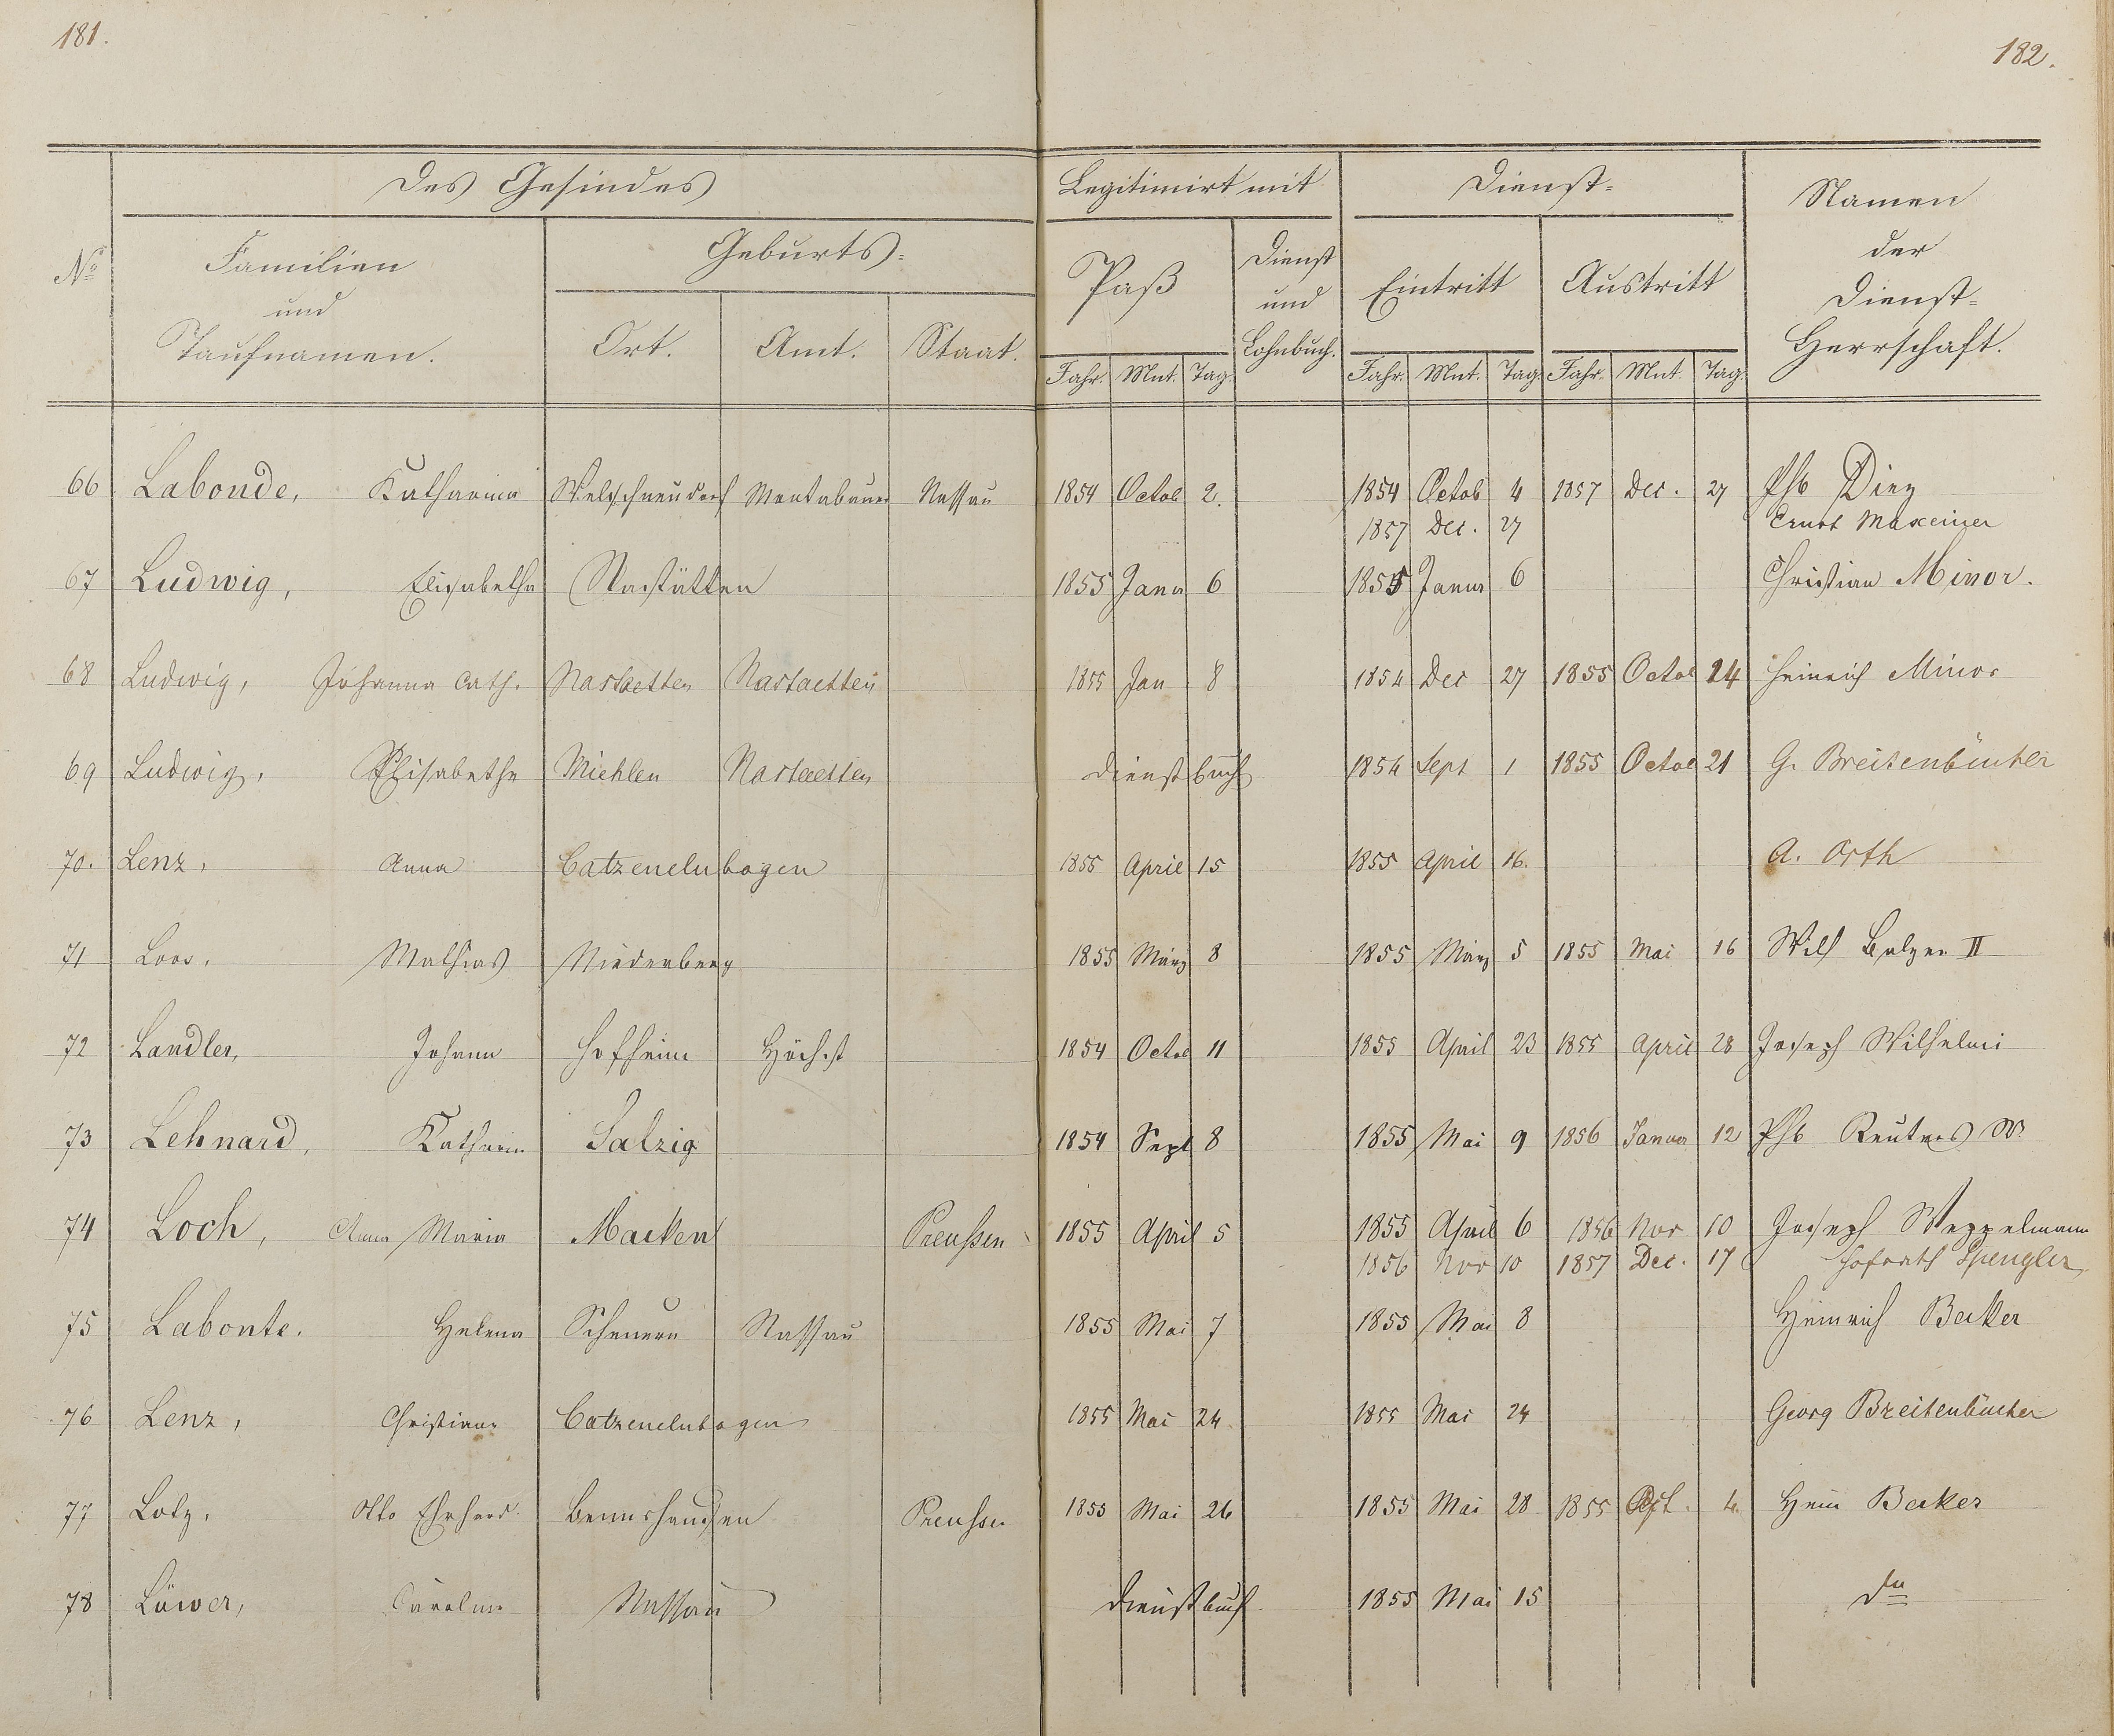 181.
182.
Des Gesindes
Legitimirt mit
Dienst-
Namen
der
Dienst-
Herrschaft.
No
Familien
und
Taufnamen.
Geburts-
Ort. Amt. Staat.
Paß
Dienst
und
Lohnbuch.
Eintritt Austritt
Jahr. Mnt. Tag. Jahr. Mnt. Tag. Jahr. Mnt. Tag.
66 Labonde, Katharina Welschneudorf Montabauer Nassau 1854 Octob 2. 1854 Octob 4 1857 Dec. 27 Phb Diez
1857 Dec. 27 Ernst Maxeiner
67 Ludwig, Elisabetha Nastätten 1855 Janu 6 1855 Janur 6 Christian Minor.
68 Ludwig, Johanna Cath. Nastaetten Nastaetten 1855 Jan 8 1854 Dec 27 1855 Octob 24 Heinrich Minor
69 Ludwig, Elisabethe Miehlen Nastaetten Dienstbuch 1854 Sept 1 1855 Octob 21 G. Breitenbücher
70. Lenz, Anna Catzenelnbogen 1855 April 15 1855 April 16. A. Orth
71 Loos, Mathias Niederberg 1855 März 8 1855 März 5 1855 Mai 16 Wilh Balzer II
72 Landler, Johann Hofheim Höchst 1854 Octob 11 1855 April 23 1855 April 28 Joseph Wilhelmi
73 Lehnard, Katharin Salzig 1854 Sept 8 1855 Mai 9 1856 Janua 12 Phb Reuters W.
74 Loch, Anna Maria Macken Preußen 1855 April 5 1855 April 6 1856 Nov 10 Joseph Weppelmann
1856 Nov 10 1857 Dec. 17 Hofrath Spengler
75 Labonte. Helena Scheuern Nassau 1855 Mai 7 1855 Mai 8 Heinrich Becker
76 Lenz, Christiane Catzenelnbogen 1855 Mai 24 1855 Mai 24 Georg Breitenbücher
77 Lotz, Otto Ehrhard Preußen 1855 Mai 26 1855 Mai 28 1855 4. Hein Becker
78 Löwer, Carolina Nassau Dienstbuch 1855 Mai 15 do